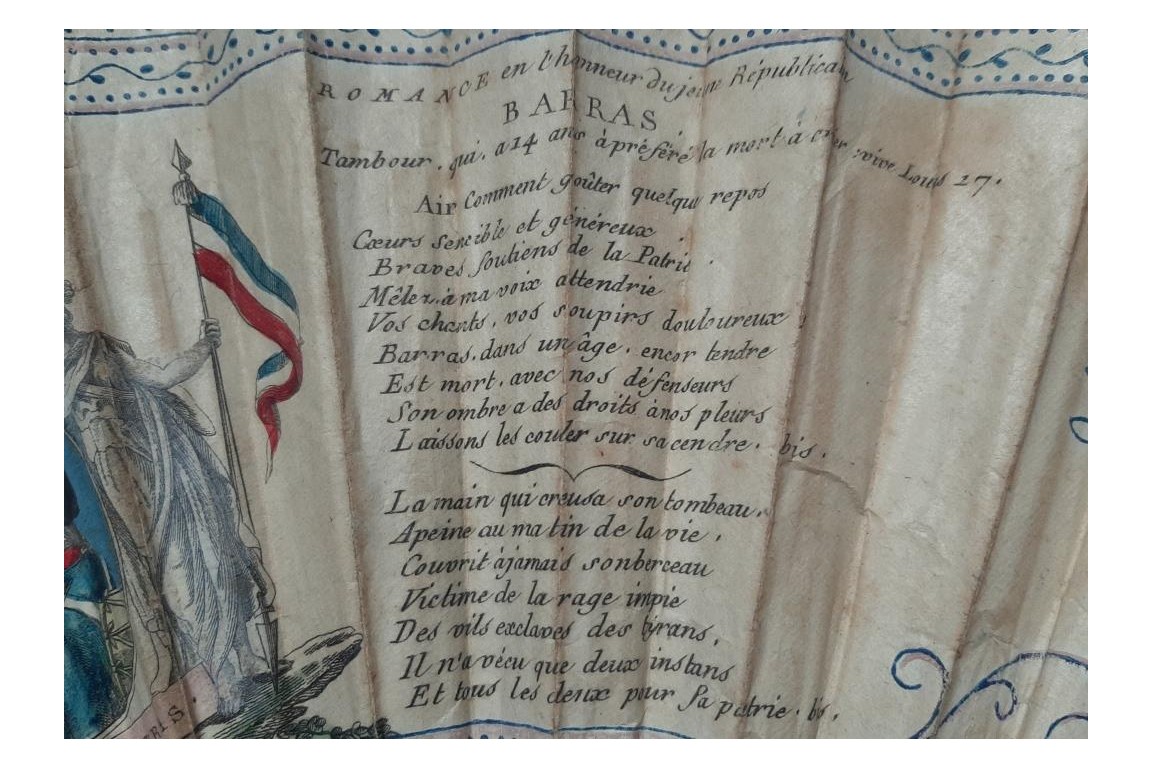 ROMANCE en l'honneur du jeune Républicain
BARRAS
Tambour. qui. a 14 ans à préféré la mort à crier vive Louis 17.
Air Comment goûter quelque repos
Cœurs sencible et généreux
Braves soutiens de la Patrie.
Mêlez. à ma voix attendrie
Vos chants, vos soupirs douloureux
Barras. dans un âge. encor tendre
Est mort. avec nos défenseurs
Son ombre a des droits à nos pleurs
Laissons les couler sur sa cendre. bis.
La main qui creusa son tombeau.
Apeine au matin de la vie.
Couvrit àjamais son berceau
Victime de la rage impie
Des vils exclaves des tyrans.
Il n'a vécu que deux instans
Et tous les deux pour sa patrie. bis.
RIS.